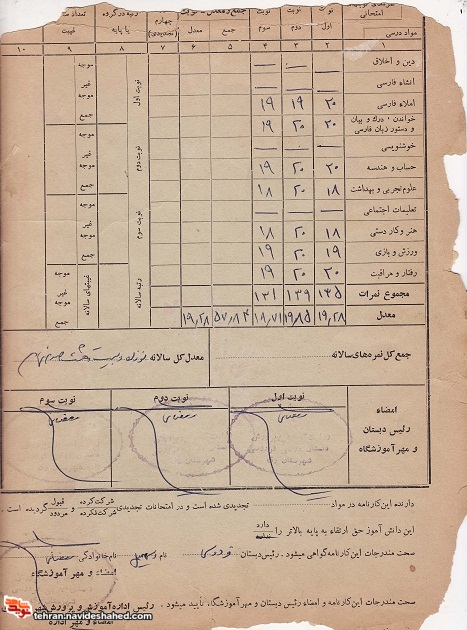 امتحانی
مواد درسی
نوبت اول
نوبت دوم
نوبت سوم
جمع
معدل
چهارم (تجدیدی)
رتبه در گروه یا پایه
غیبت
۱ ۲ ۳ ۴ ۵ ۶ ۷ ۸ ۹ ۱۰
دین و اخلاق — — — موجه
انشاء فارسی — — — غیر موجه
املاء فارسی ۲۰ ۱۹ ۱۹ جمع
خواندن ؛ درك و بیان و دستور زبان فارسی ۲۰ ۲۰ ۱۹ موجه
خوشنویسی — — — غیر موجه
حساب و هندسه ۲۰ ۲۰ ۱۹
علوم تجربی و بهداشت ۱۸ ۲۰ ۱۸ جمع
تعلیمات اجتماعی — — — موجه
هنر و کار دستی ۱۸ ۲۰ ۱۸ غیر موجه
ورزش و بازی ۱۹ ۲۰ ۱۹ جمع
رفتار و مراقبت ۲۰ ۲۰ ۱۹ موجه
مجموع نمرات ۱۳۵ ۱۳۹ ۱۳۱ غیر موجه
معدل ۱۹٫۲۸ ۱۹٫۸۵ ۱۸٫۷۱ ۵۷٫۸۴ ۱۹٫۲۸ جمع
نوبت اول
نوبت دوم
نوبت سوم
رتبه سالانه
غیبتهای سالانه
جمع کل نمره‌های سالانه
معدل کل سالانه
امضاء رئیس دبستان و مهر آموزشگاه
نوبت اول
نوبت دوم
نوبت سوم
دارنده این کارنامه در مواد تجدیدی شده است و در امتحانات تجدیدی شرکت کرده شرکت نکرده و قبول مردود گردیده است .
این دانش آموز حق ارتقاء به پایه بالاتر را دارد
صحت مندرجات این کارنامه گواهی میشود . رئیس دبستان نام نام خانوادگی
امضاء و مهر آموزشگاه
صحت مندرجات این کارنامه و امضاء رئیس دبستان و مهر آموزشگاه، تأیید میشود .
رئیس اداره آموزش و پرورش
امضاء و مهر اداره
tehran.navideshahed.com